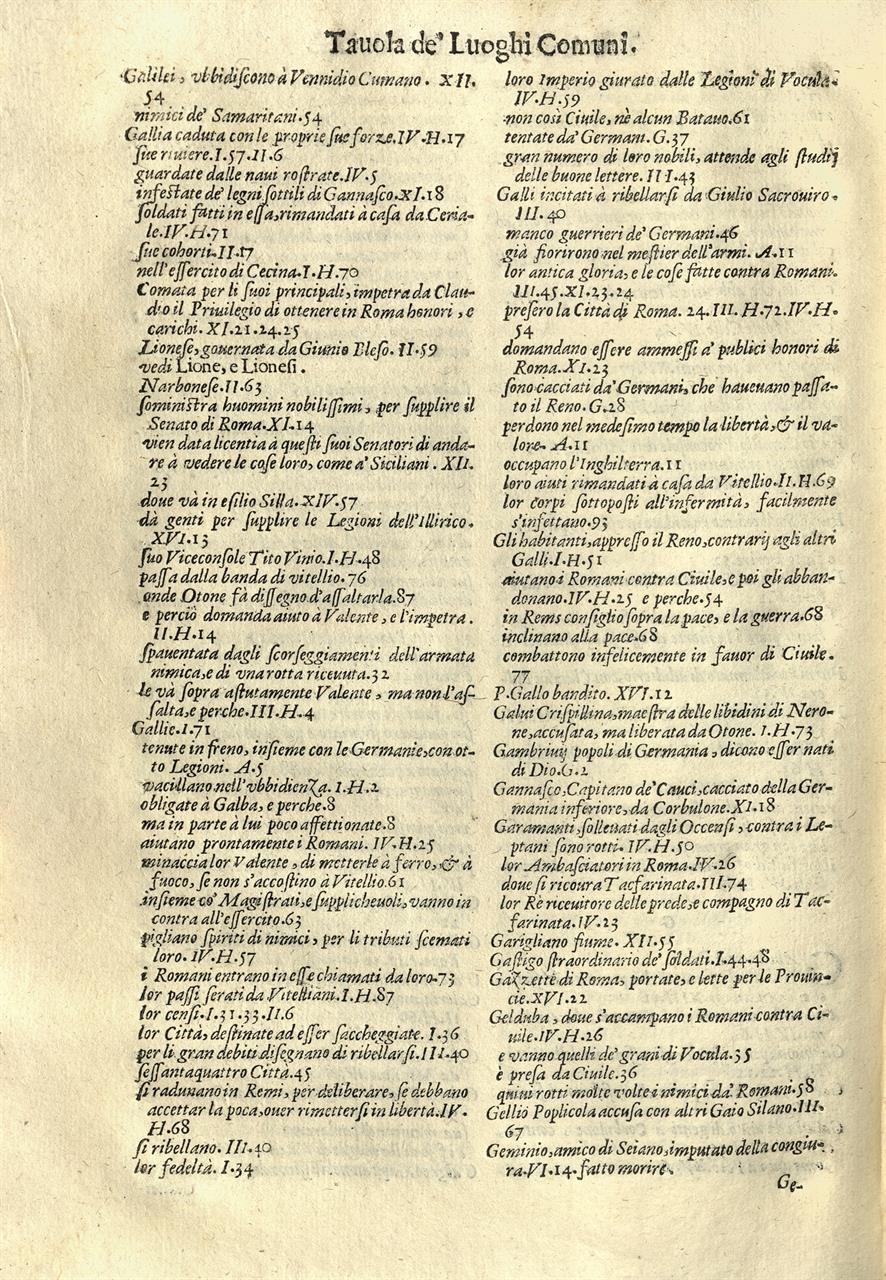 Tauola de' Luoghi Comuni.
Galilei, vbbidiscono à Vennidio Cumano. XII.
54
nimici de' Samaritani.54
Gallia caduta con le proprie sue forze.IV.H.17
sue riuiere.I.57.II.6
guardate dalle naui rostrate.IV.5
infestate de' legni sottili di Gannasco.XI.18
soldati fatti in essa,rimandati à casa da Ceria-
le.IV.H.71
sue cohorti.II.17
nell'essercito di Cecina.I.H.70
Comata per li suoi principali, impetra da Clau-
dio il Priuilegio di ottenere in Roma honori, e
carichi. XI.21.24.25
Lionese, gouernata da Giunio Bleso. II.59
vedi Lione, e Lionesi.
Narbonese.II.63
soministra huomini nobilissimi, per supplire il
Senato di Roma.XI.14
vien data licentia à questi suoi Senatori di anda-
re à vedere le cose loro, come a' Siciliani. XII.
23
doue và in esilio Silla.XIV.57
dà genti per supplire le Legioni dell'Illirico.
XVI.13
suo Viceconsole Tito Vinio.I.H.48
passa dalla banda di vitellio.76
onde Otone fà dissegno d'assaltarla.87
e perciò domanda aiuto à Valente, e l'impetra.
II.H.14
spauentata dagli scorseggiamenti dell'armata
nimica,e di vna rotta riceuuta.32
le và sopra astutamente Valente, ma non l'as-
salta,e perche.III.H.4
Gallie.I.71
tenute in freno, insieme con le Germanie,con ot-
to Legioni. A.5
vacillano nell'vbbidienza. I.H.2
obligate à Galba, e perche.8
ma in parte à lui poco affettionate.8
aiutano prontamente i Romani. IV.H.25
minaccia lor Valente, di metterle à ferro, & à
fuoco, se non s'accostino à Vitellio.61
insieme co' Magistrati,e supplicheuoli,vanno in
contra all'essercito.63
pigliano spiriti di nimici, per li tributi scemati
loro. IV.H.57
i Romani entrano in esse chiamati da loro.73
lor passi serati da Vitelliani.I.H.87
lor censi.I.31.33.II.6
lor Città, destinate ad esser saccheggiate. I.36
per li gran debiti disegnano di ribellarsi.III.40
sessantaquattro Città.45
si radunano in Remi, per deliberare, se debbano
accettar la poca,ouer rimettersi in libertà.IV.
H.68
si ribellano. III.40
lor fedeltà. I.34
loro Imperio giurato dalle Legioni di Vocula.
IV.H.59
non così Ciuile, nè alcun Batauo.61
tentate da' Germani. G.37
gran numero di loro nobili, attende agli studij
delle buone lettere. III.43
Galli incitati à ribellarsi da Giulio Sacrouiro.
III.40
manco guerrieri de' Germani.46
già fiorirono nel mestier dell'armi. A.11
lor antica gloria, e le cose fatte contra Romani.
III.45.XI.23.24
presero la Città di Roma. 24.III. H.72.IV.H.
54
domandano essere ammessi a' publici honori di
Roma.XI.23
sono cacciati da' Germani, che haueuano passa-
to il Reno.G.28
perdono nel medesimo tempo la libertà,& il va-
lore. A.11
occupano l'Inghilterra.11
loro aiuti rimandati à casa da Vitellio.II.H.69
lor corpi sottoposti all'infermità, facilmente
s'infettano.93
Gli habitanti,appresso il Reno,contrarij agli altri
Galli.I.H.51
aiutano i Romani contra Ciuile,e poi gli abban-
donano.IV.H.25 e perche.54
in Rems consiglio sopra la pace, e la guerra.68
inclinano alla pace.68
combattono infelicemente in fauor di Ciuile.
77
P.Gallo bandito. XVI.12
Galui Crispillina,maestra delle libidini di Nero-
ne,accusata, ma liberata da Otone. I.H.73
Gambriuij popoli di Germania, dicono esser nati
di Dio.G.2
Gannasco,Capitano de' Cauci,cacciato della Ger-
mania inferiore, da Corbulone.XI.18
Garamanti,solleuati dagli Occensi, contra i Le-
ptani sono rotti. IV.H.50
lor Ambasciatori in Roma.IV.26
doue si ricoura Tacfarinata.III.74
lor Rè riceuitore delle prede,e compagno di Tac-
farinata.IV.23
Garigliano fiume. XII.55
Gastigo straordinario de' soldati.I.44.48
Gazzette di Roma, portate,e lette per le Prouin-
cie.XVI.22
Gelduba, doue s'accampano i Romani contra Ci-
uile.IV.H.26
e vanno quelli de' grani di Vocula.35
è presa da Ciuile.36
quiui rotti molte volte i nimici da' Romani.58
Gellio Poplicola accusa con altri Gaio Silano.III.
67
Geminio,amico di Seiano,imputato della congiu-
ra.VI.14.fatto morire.
Ge-